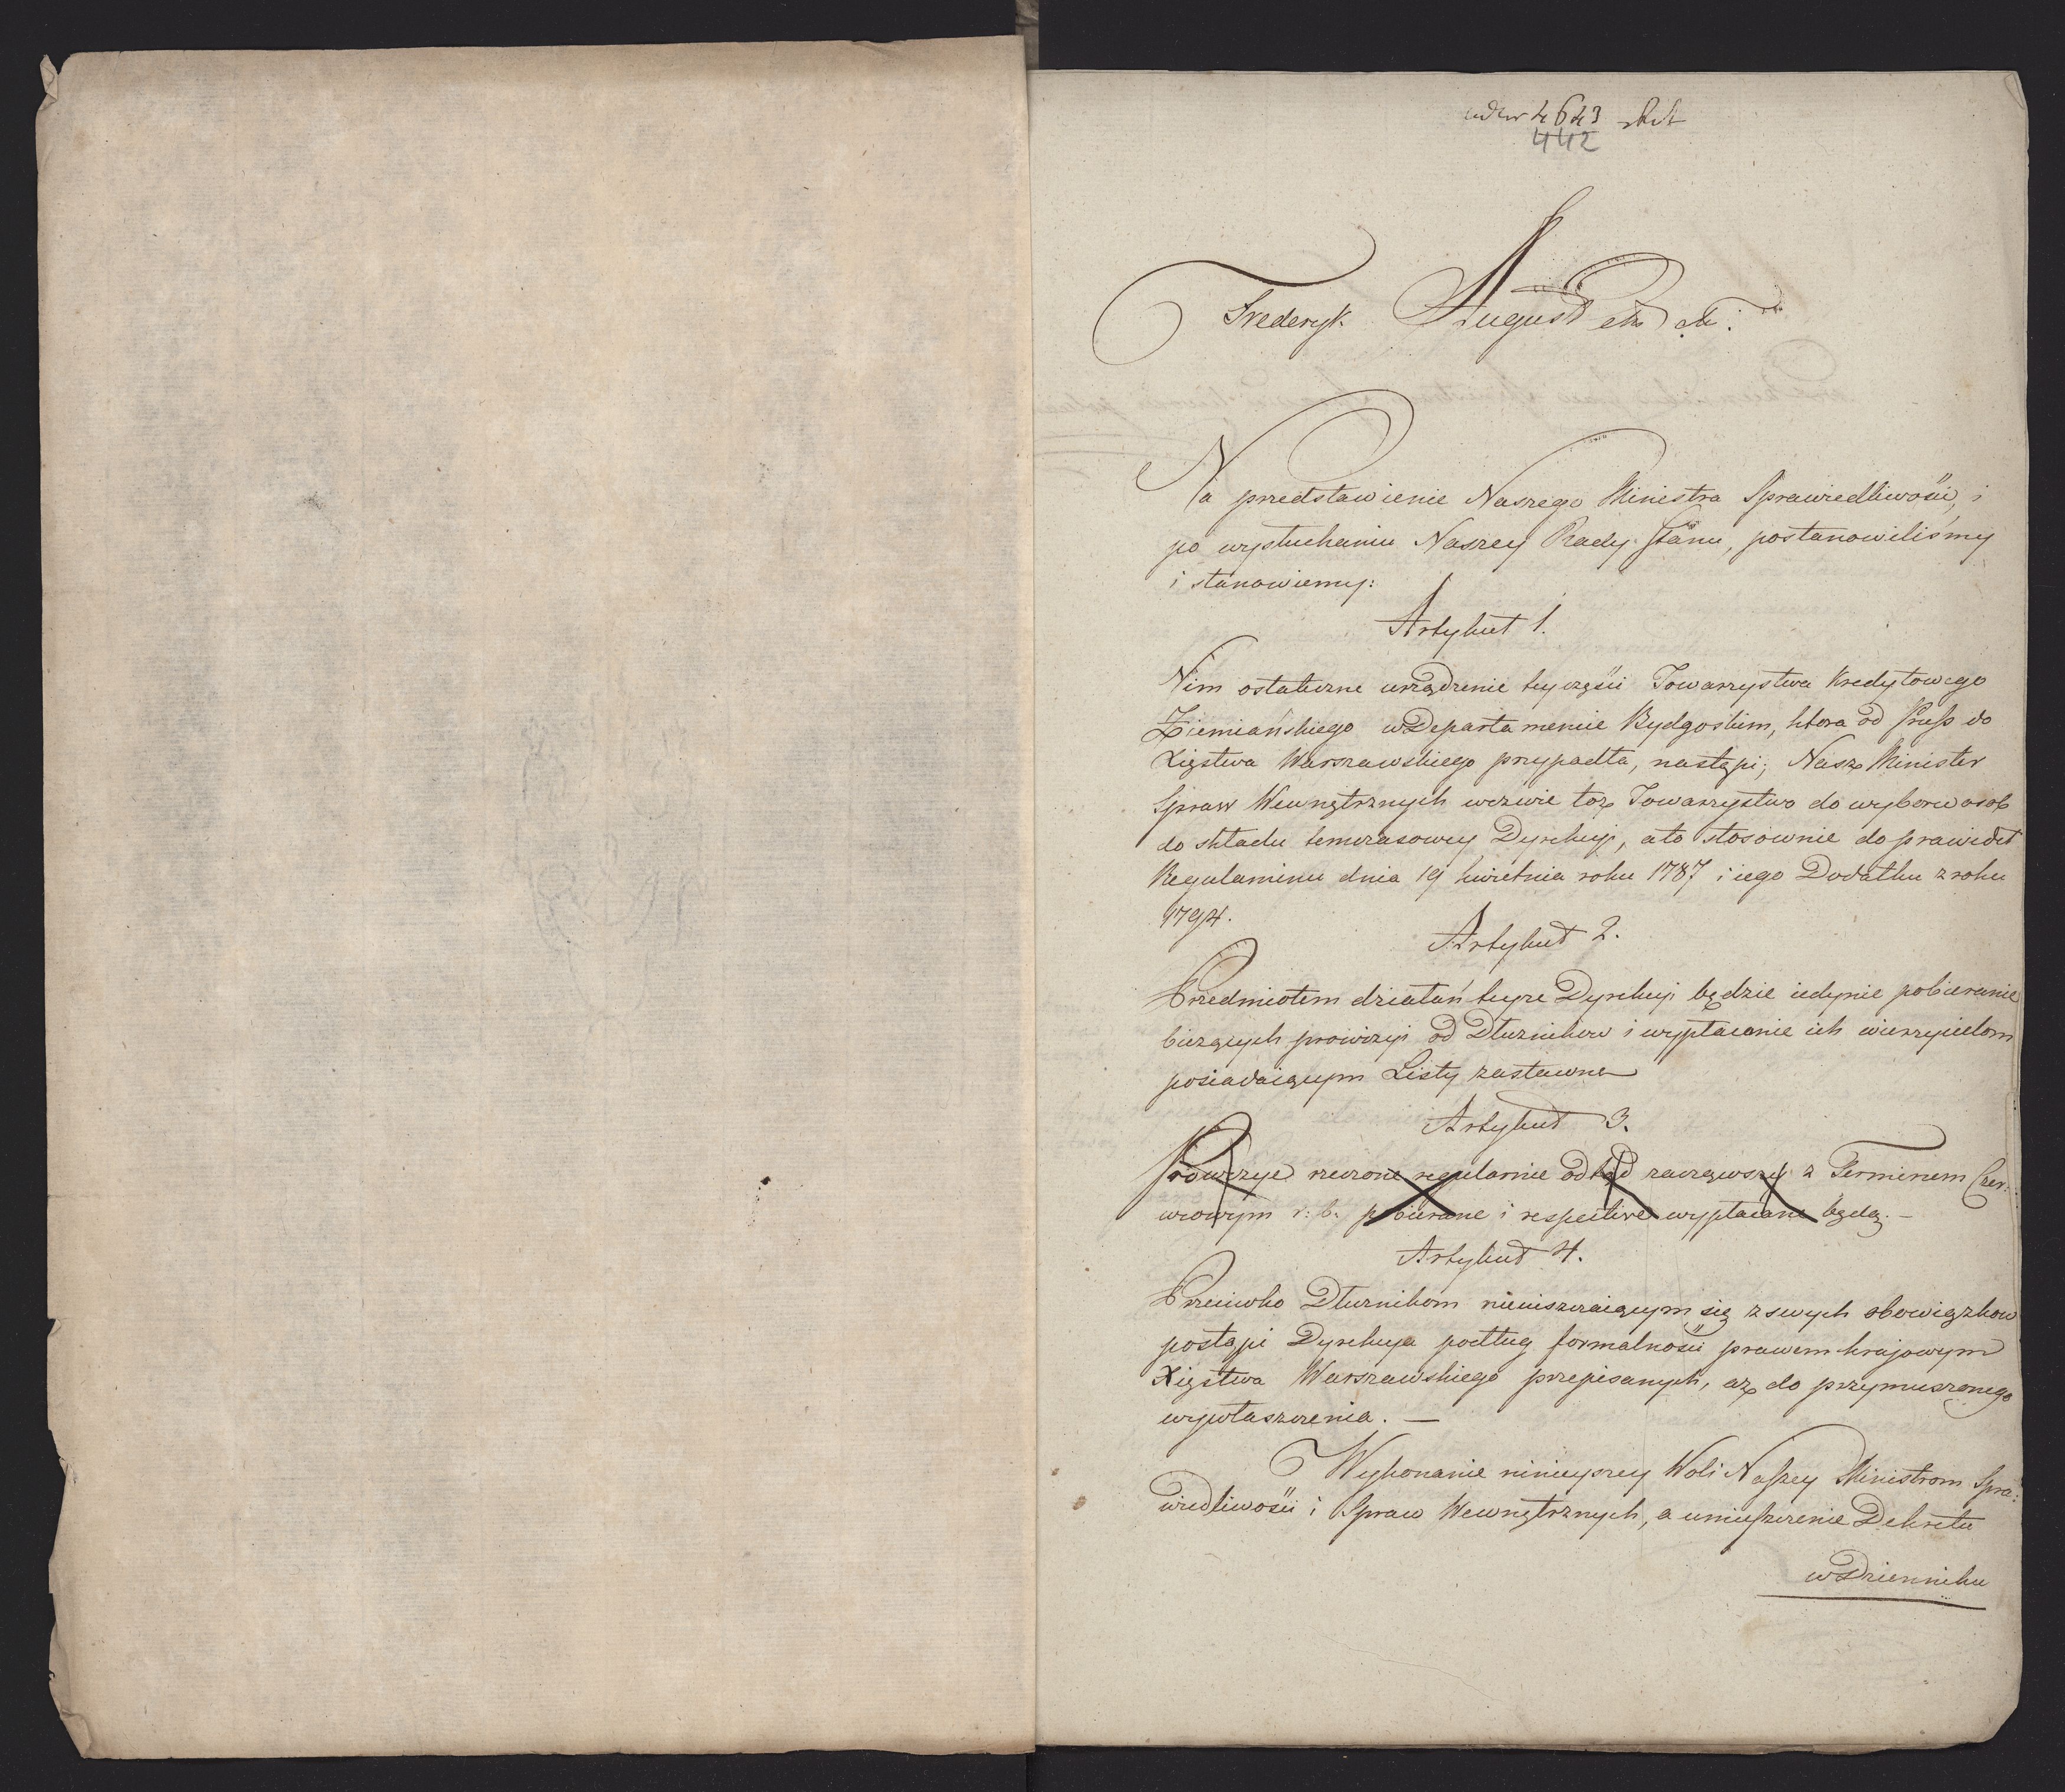 ad Nr 4643
442
Frederyk August etc etc:
Na przedstawienie Naszego Ministra Sprawiedliwości, i
po wysłuchaniu Naszey Rady Stanu, postanowiliśmy
i stanowiemy:
Artykuł 1.
Nim ostateczne urządzenie tey części Towarzystwa Kredytowego
Ziemiańskiego w Departamencie Bydgoskim, ktora od Pruss do
Xięstwa Warszawskiego przypadła, nastąpi; Nasz Minister
Spraw Wewnętrznych wezwie toż Towarzystwo do wyboru osob
do składu temczasowey Dyrekcyi, a to stosownie do prawideł
Regulaminu dnia 19 kwietnia roku 1787 i iego Dodatku z roku
1794.
Artykuł 2.
Przedmiotem działań teyże Dyrekcyi będzie iedynie pobieranie
bieżących prowizyi od Dłużników i wypłacanie ich wierzycielom
posiadaiącym Listy zastawne
Artykuł 3.
Prowizye rzeczone regularnie odtąd zacząwszy z Terminem Czer:
wcowym r: b. pobierane i respective wypłacane będą. —
Artykuł 4.
Przeciwko Dłużnikom nieuiszczaiącym się z swych obowiązkow
postąpi Dyrekcya podług formalności prawem krajowym
Xięstwa Warszawskiego przepisanych, aż do przymuszonego
wywłaszczenia. —
Wykonanie ninieyszey Woli Naszey Ministrom Spra:
wiedliwości i Spraw Wewnętrznych, a umieszczenie Dekretu
w Dzienniku